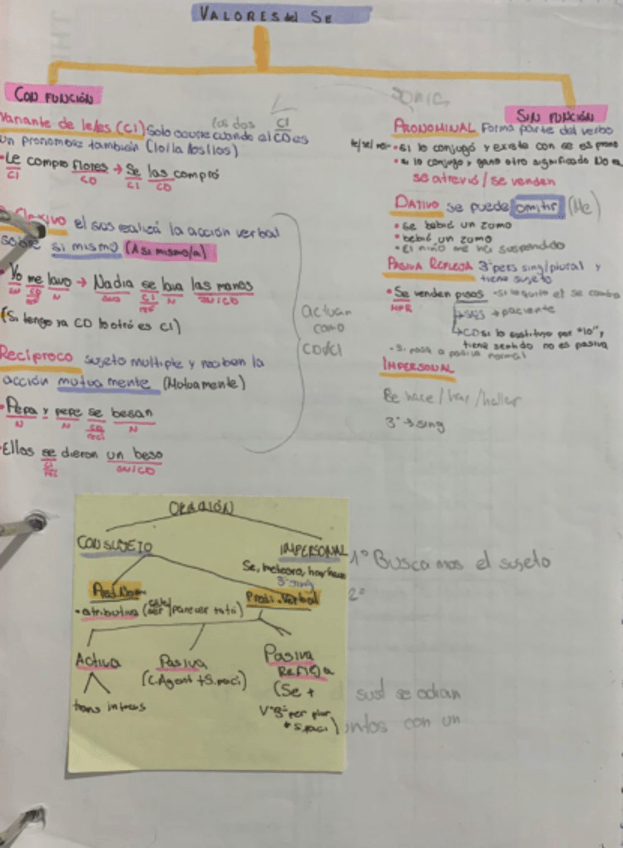 VALORES del SE
CON FUNCIÓN
Variante de le/les (CI) Solo ocurre cuando el CD es
los dos CI
CD
un pronombre también (lo/la/los/las)
• Le compro flores → Se las compró
CI CD CI CD
Reflexivo el sus realiza la acción verbal
sobre si mismo (A si mismo/a)
• Yo me lavo → Nadia se lava las manos
(Si tengo ya CD lo otro es CI)
Recíproco sujeto multiple y reciben la
acción mutuamente (Mutuamente)
• Pepa y pepe se besan
N N N
• Ellas se dieron un beso
CI
SN/CD
actuan
como
CD/CI
SIN FUNCIÓN
PRONOMINAL Forma parte del verbo
• Si lo conjugó y existe con se es prono
• si lo conjugo y gana otro significado No es
se atrevió / se venden
DATIVO se puede omitir (Me)
• Se bebió un zumo
• bebió un zumo
• El niño me ha suspendido
PASIVA REFLEJA 3ª pers sing/plural y
tiene sujeto
• Se venden pisos - Si le quito el se cambia
MPR
→ sus → paciente
→ CD si lo sustituyo por "lo",
tiene sentido no es pasiva
- Si pasa a pasiva normal
IMPERSONAL
Se hace / hay / haber
3ª → sing
ORACIÓN
CON SUJETO
IMPERSONAL
Se, meteoro, hay/hace
3ª sing
Pred. Verbal
• atributiva (ser/parecer
Activa
Pasiva
(C.Agent + S.paci)
Pasiva
REFLEJA
(Se +
V 3ª per
+ S.paci)
1º Buscamos el sujeto
2º
sust se
untos con un